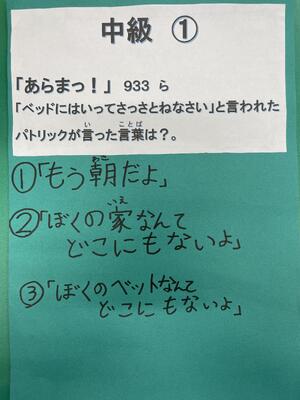 中級 ①
「あらまっ！」 933 ら
「ベッドにはいってさっさとねなさい」と言われた
パトリックが言った言葉は？。
①「もう朝だよ」
②「ぼくの家なんて
どこにもないよ」
③「ぼくのベットなんて
どこにもないよ」